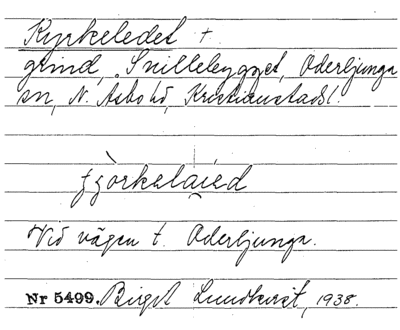 Kyrkeledet +
grind, Snillebygget, Oderljunga
sn, N. Åsbo hd, Kristianstads l.
Vid vägen t. Oderljunga.
Nr 5499. Birgit Lundkvist, 1938.